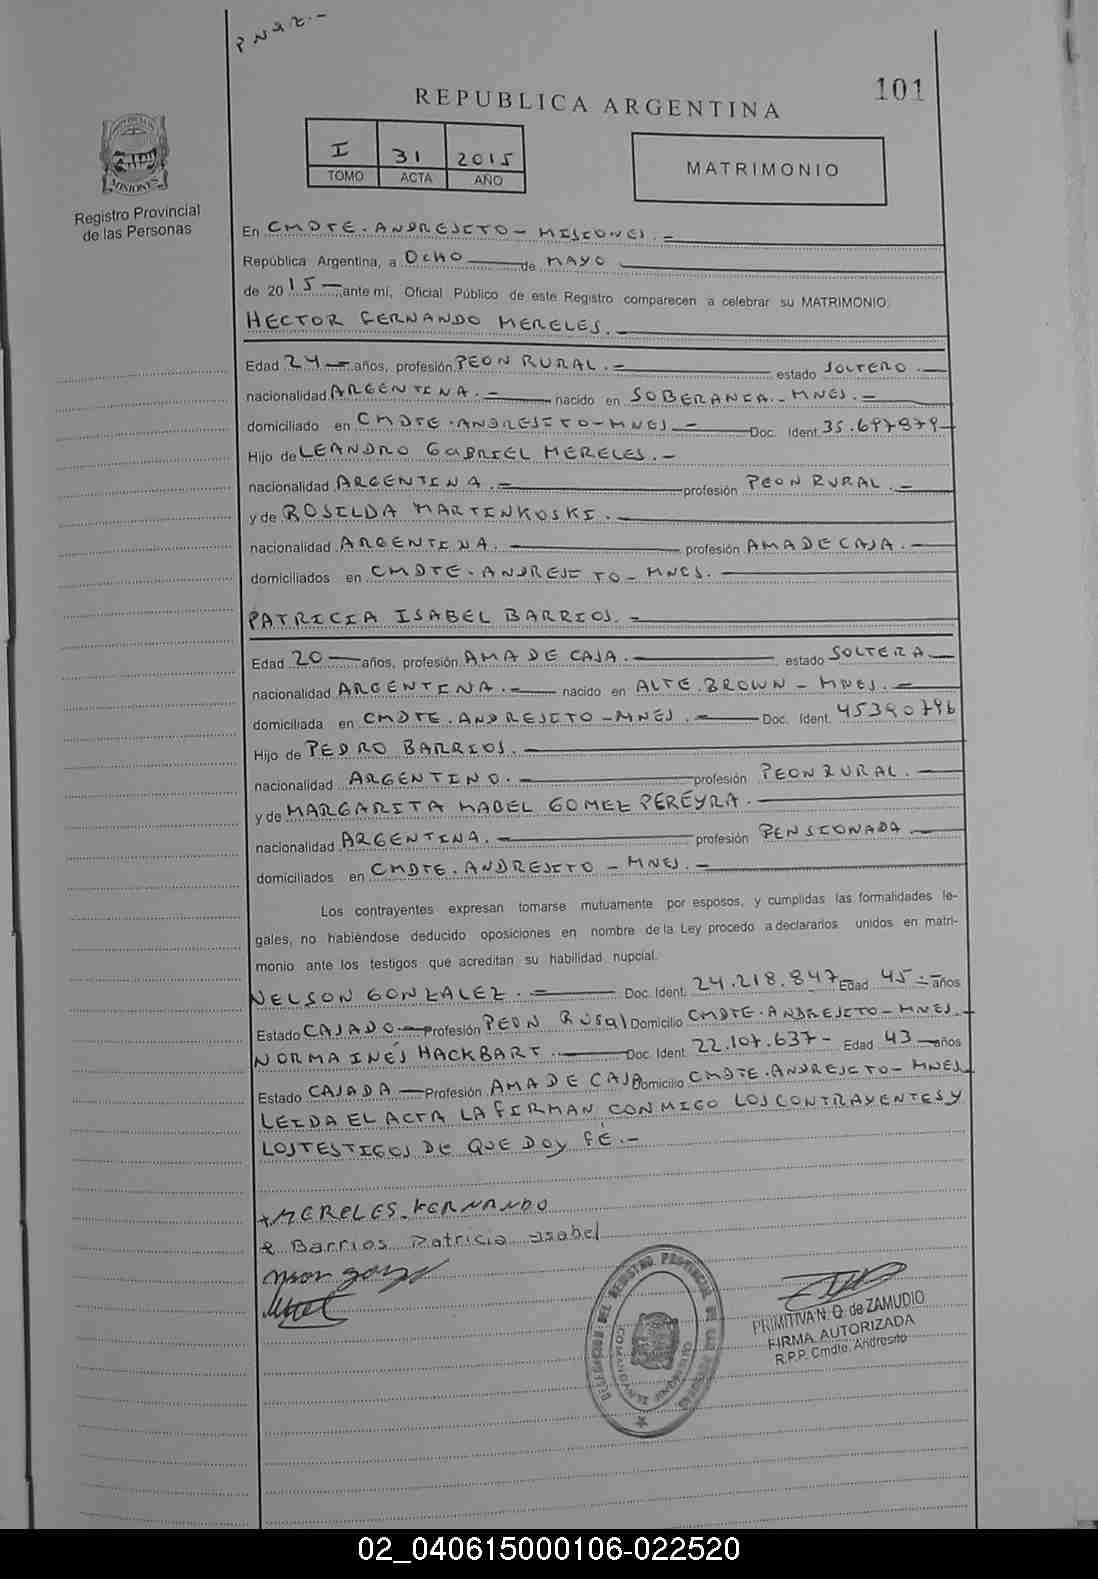 REPUBLICA ARGENTINA
101
I 31 2015
TOMO ACTA AÑO
MATRIMONIO
MISIONES
Registro Provincial
de las Personas
En CMDTE. ANDRESITO - MISIONES. -
República Argentina, a OCHO de MAYO
de 2015 - ante mí, Oficial Público de este Registro comparecen a celebrar su MATRIMONIO:
HECTOR FERNANDO MERELES. -
Edad 24 - años, profesión PEON RURAL. - estado SOLTERO. -
nacionalidad ARGENTINA. - nacido en SOBERANIA - MNES. -
domiciliado en CMDTE. ANDRESITO - MNES - Doc. Ident. 35.697879 -
Hijo de LEANDRO GABRIEL MERELES. -
nacionalidad ARGENTINA. - profesión PEON RURAL. -
y de ROSILDA MARTINKOSKI. -
nacionalidad ARGENTINA. - profesión AMA DE CASA. -
domiciliados en CMDTE. ANDRESITO - MNES. -
PATRICIA ISABEL BARRIOS. -
Edad 20 - años, profesión AMA DE CASA. - estado SOLTERA -
nacionalidad ARGENTINA. - nacido en ALTE. BROWN - MNES. -
domiciliada en CMDTE. ANDRESITO - MNES. - Doc. Ident. 45390796
Hijo de PEDRO BARRIOS. -
nacionalidad ARGENTINO. - profesión PEON RURAL. -
y de MARGARITA MABEL GOMEZ PEREYRA. -
nacionalidad ARGENTINA. - profesión PENSIONADA -
domiciliados en CMDTE. ANDRESITO - MNES. -
Los contrayentes expresan tomarse mutuamente por esposos, y cumplidas las formalidades le-
gales, no habiéndose deducido oposiciones en nombre de la Ley procedo a declararlos unidos en matri-
monio ante los testigos que acreditan su habilidad nupcial.
NELSON GONZALEZ. - Doc. Ident. 24.218.847 Edad 45 - años
Estado CASADO - Profesión PEON RURAL Domicilio CMDTE. ANDRESITO - MNES. -
NORMA INÉS HACKBART. - Doc. Ident. 22.107.637 - Edad 43 - años
Estado CASADA - Profesión AMA DE CASA Domicilio CMDTE. ANDRESITO - MNES. -
LEIDA EL ACTA LA FIRMAN CONMIGO LOS CONTRAYENTES Y
LOS TESTIGOS DE QUE DOY FÉ. -
x MERELES FERNANDO
x Barrios Patricia Isabel
DELEGACION DEL REGISTRO PROVINCIAL DE LAS PERSONAS
COMANDANTE ANDRESITO MISIONES
PRIMITIVA N. Q. de ZAMUDIO
FIRMA AUTORIZADA
R.P.P. Cmdte. Andresito
02_040615000106-022520